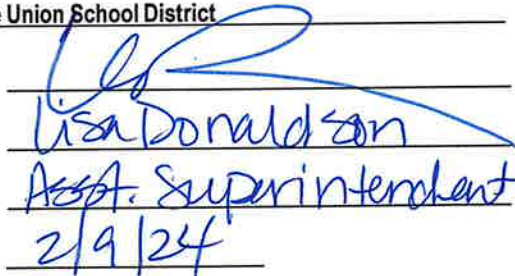 e Union School District
Lisa Donaldson
Asst. Superintendent
2/9/24